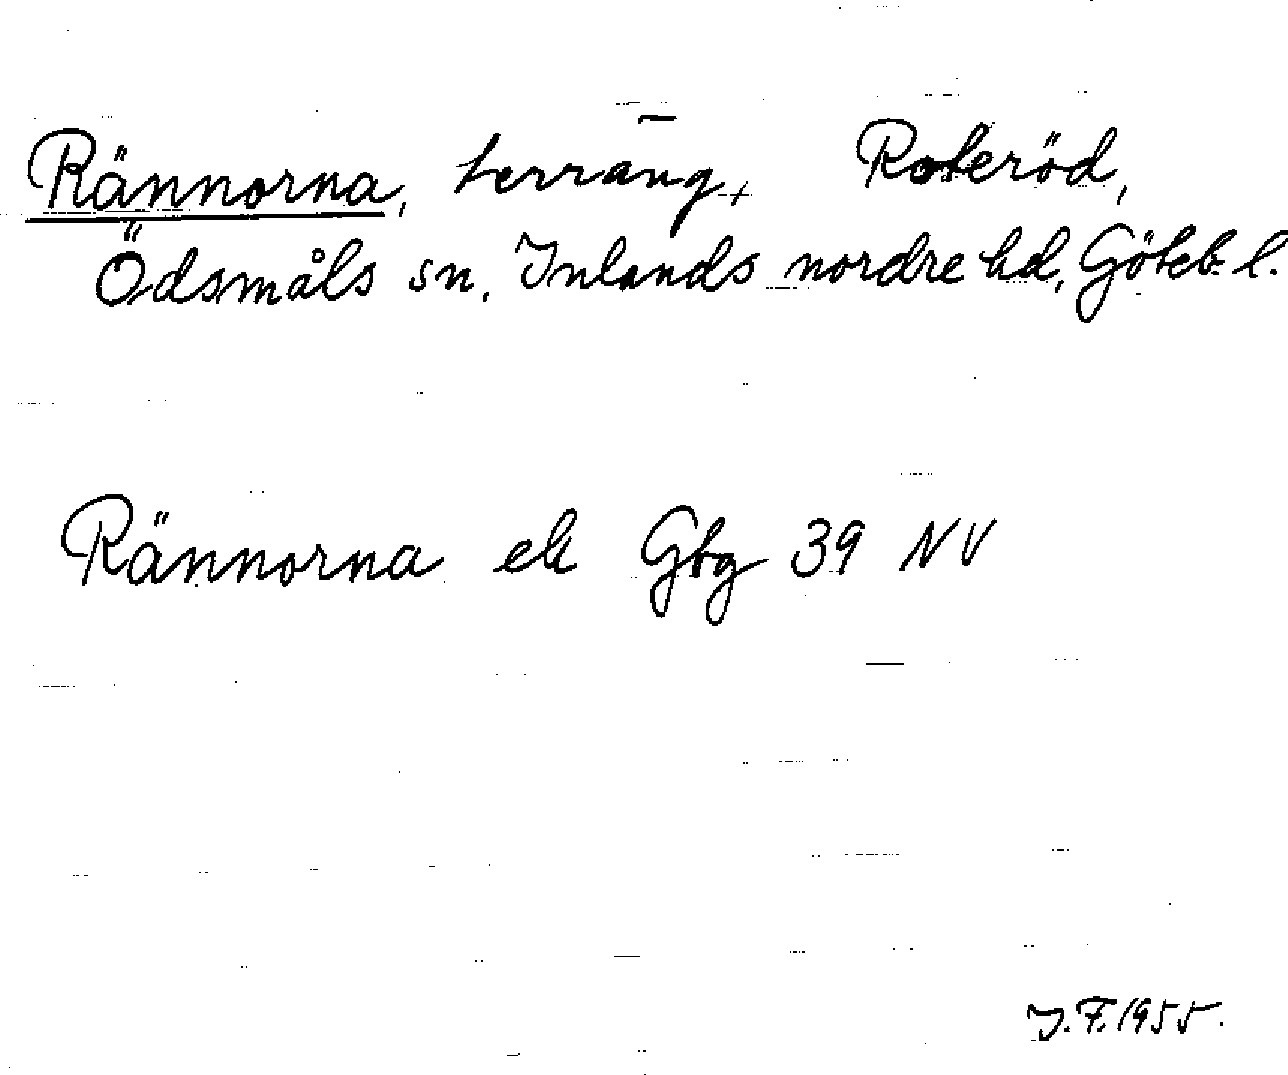 Rännorna, terräng, Roteröd,
Ödsmåls sn, Inlands nordre hd, Göteb. l.
Rännorna ek Gbg 39 NV
J.F. 1955.